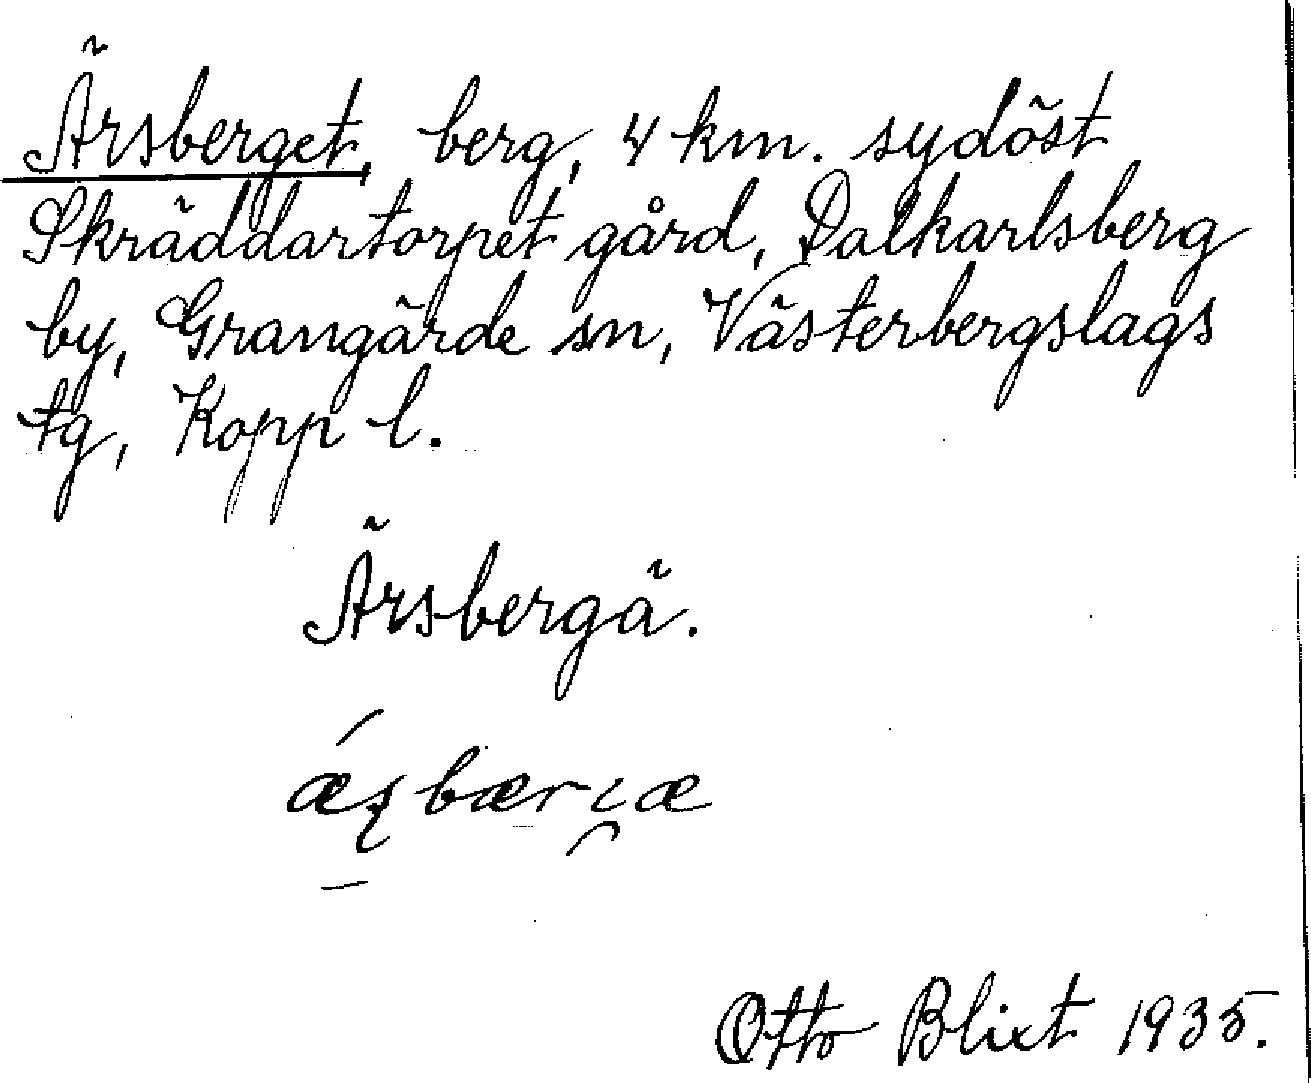 Ärsberget, berg, 4 km. sydöst
Skräddartorpet gård, Dalkarlsberg
by, Grangärde sn, Västerbergslags
tg, Kopp l.
Ärsbergä.
Otto Blixt 1935.